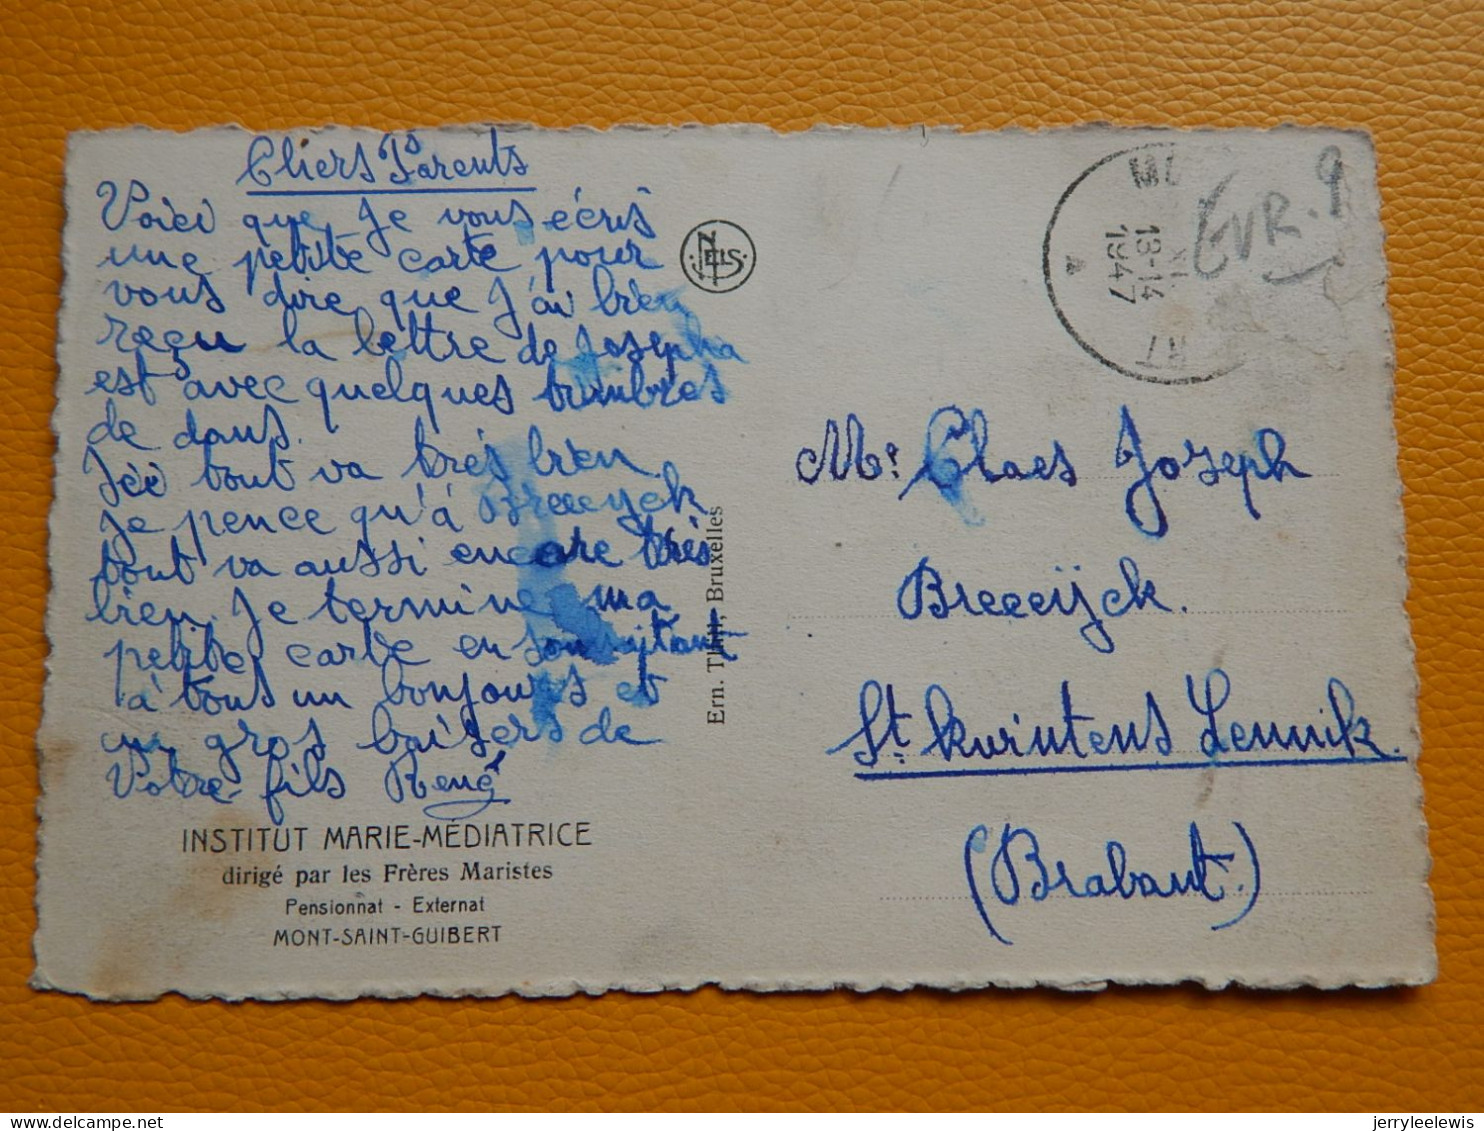 Chers Parents
Voici que je vous écris
une petite carte pour
vous dire que j'ai bien
reçu la lettre de Josepha
est avec quelques timbres
de dans.
Ici tout va très bien
je pence qu'à Breeeijck
tout va aussi encore très
bien. Je termine ma
petite carte en souhaitant
à tous un bonjours et
un gros baisers de
Votre fils René
INSTITUT MARIE-MÉDIATRICE
dirigé par les Frères Maristes
Pensionnat - Externat
MONT-SAINT-GUIBERT
NELS
Ern. Thill, Bruxelles
13-14
1947
RT
EVR. 9
Mr Claes Joseph
Breeeijck.
St Kwintens Lennik.
(Brabant.)
jerryleelewis